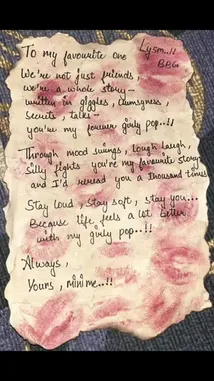 To my favourite one Lysm..!!
BPG
We're not just friends,
we're a whole story –
written in giggles, clumsyness,
secrets, talks –
you're my forever girly pop..!!
Through mood swings, lough laugh,
silly fights you're my favourite story
and I'd reread you a thousand times
Stay loud, stay soft, stay you...
Because life feels a lot better
with my girly pop..!!
Always,
Yours, mini me..!!